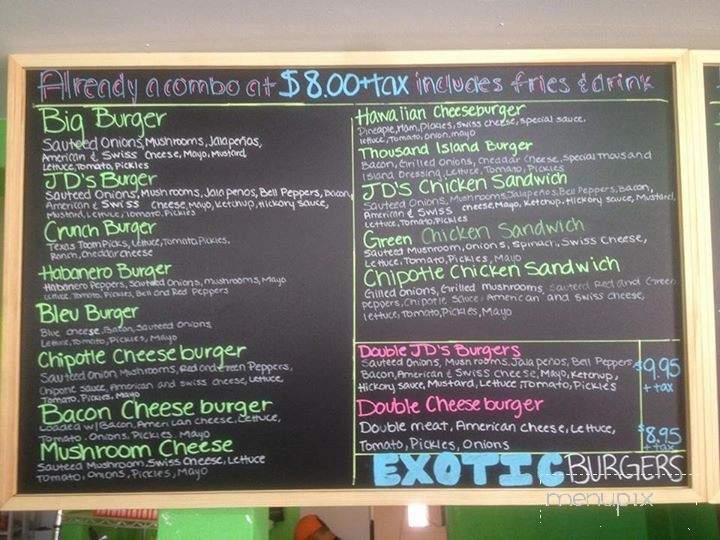 Already a combo at $8.00+tax includes fries & drink
Big Burger
Sauteed Onions, Mushrooms, Jalapeños,
American & Swiss Cheese, Mayo, Mustard,
Lettuce, Tomato, Pickles
JD's Burger
Sauteed Onions, Mushrooms, Jalapenos, Bell Peppers, Bacon,
American & Swiss Cheese, Mayo, Ketchup, Hickory Sauce,
Mustard, Lettuce, Tomato, Pickles
Crunch Burger
Texas Toom Picks, Lettuce, Tomato, Pickles,
Ranch, Cheddar cheese
Habanero Burger
Habanero Peppers, Sauteed Onions, mushrooms, Mayo
Lettuce, Tomato, Pickles, Bell and Red Peppers
Bleu Burger
Blue cheese, Bacon, Sauteed Onions
Lettuce, Tomato, Pickles, Mayo
Chipotle Cheeseburger
Sauteed Onion, Mushrooms, Red and Green Peppers,
Chipotle sauce, American and swiss cheese, Lettuce,
Tomato, Pickles, Mayo
Bacon Cheeseburger
Loaded w/ Bacon, American cheese, Lettuce,
Tomato, Onions, Pickles, Mayo
Mushroom Cheese
Sauteed Mushroom, Swiss Cheese, Lettuce
Tomato, Onions, Pickles, Mayo
Hawaiian Cheeseburger
Pineapple, Ham, Pickles, Swiss cheese, special sauce,
lettuce, Tomato, Onion, mayo
Thousand Island Burger
Bacon, Grilled Onions, Cheddar Cheese, Special Thousand
Island Dressing, Lettuce, Tomato, Pickles
JD's Chicken Sandwich
Sauteed Onions, Mushrooms, Jalapeños, Bell Peppers, Bacon,
American & Swiss cheese, Mayo, Ketchup, Hickory Sauce, Mustard,
Lettuce, Tomato, Pickles
Green Chicken Sandwich
Sauteed Mushroom, Onions, Spinach, Swiss Cheese,
Lettuce, Tomato, Pickles, Mayo
Chipotle Chicken Sandwich
Grilled onions, Grilled mushrooms, Sauteed Red and Green
peppers, Chipotle sauce, American and swiss cheese,
lettuce, Tomato, Pickles, Mayo
Double JD's Burgers
Sauteed Onions, Mushrooms, Jalapeños, Bell Peppers,
Bacon, American & Swiss Cheese, Mayo, Ketchup,
Hickory sauce, Mustard, Lettuce, Tomato, Pickles
$9.95
+tax
Double Cheeseburger
Double meat, American cheese, Lettuce,
Tomato, Pickles, Onions
$8.95
+tax
EXOTIC BURGERS
menupix